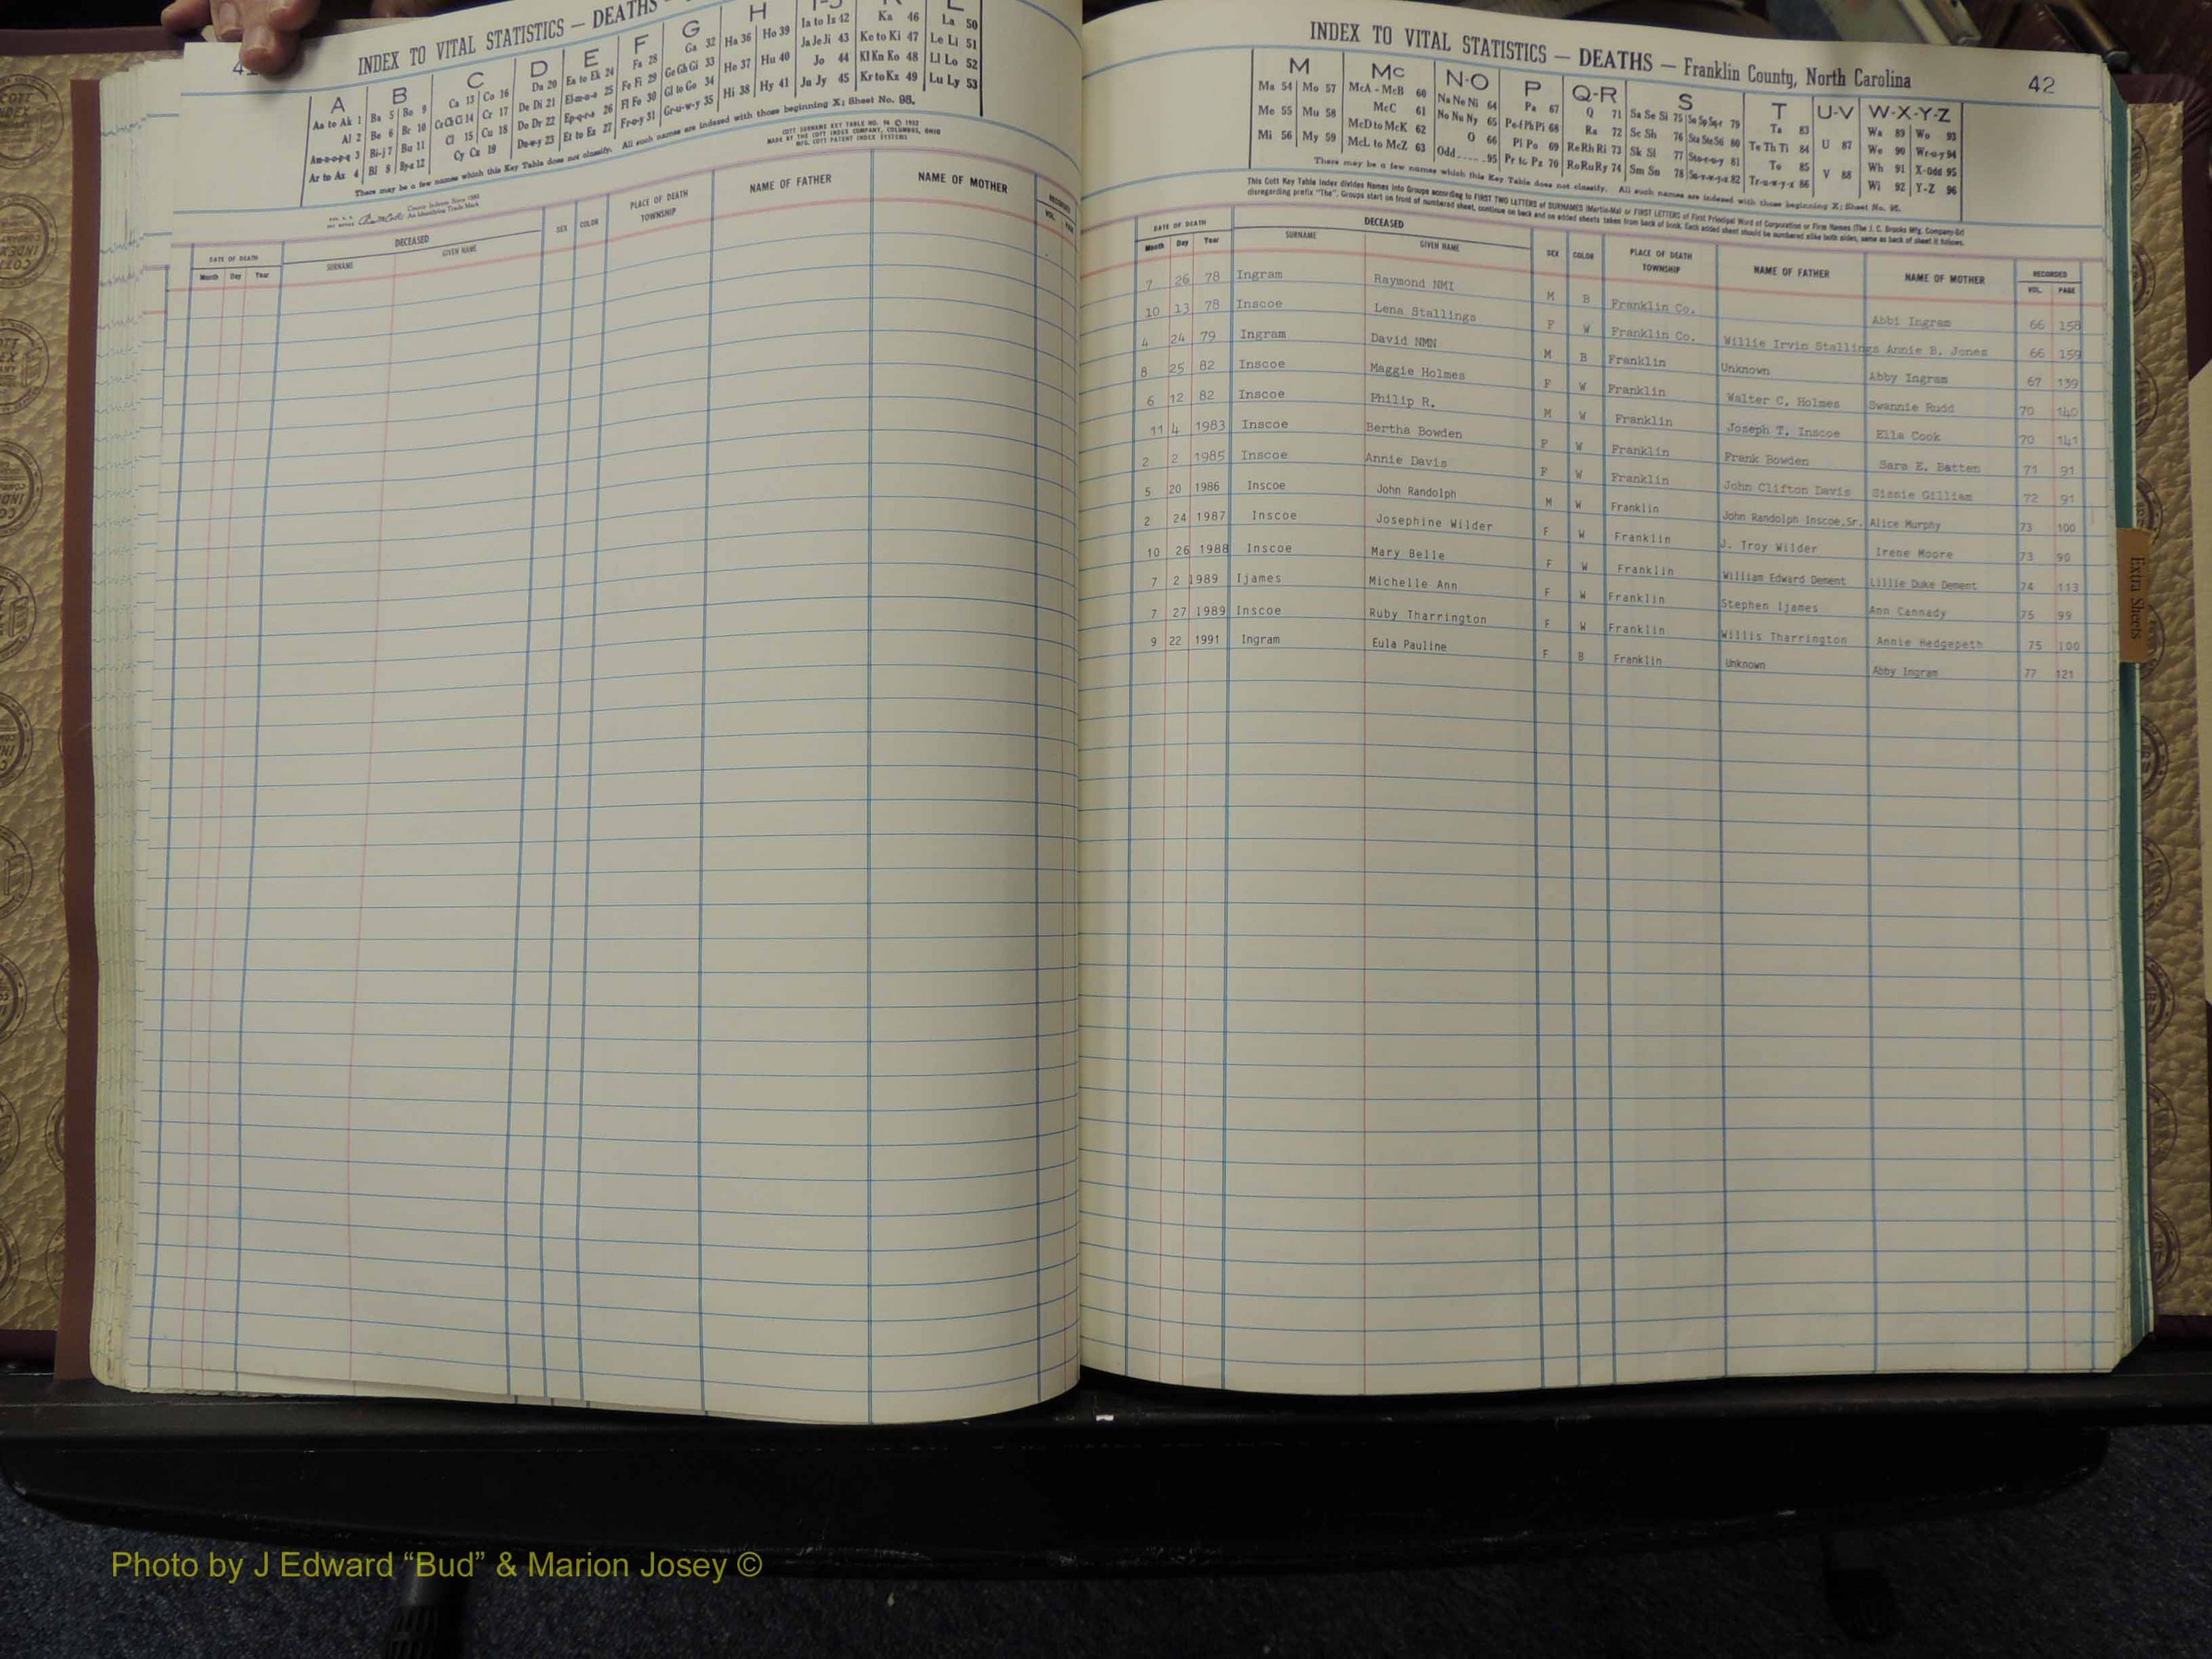 INDEX TO VITAL STATISTICS — DEATHS —
A B C D E F G H
Aa to Ak 1 Ba 5 Bo 9 Ca 13 Co 16 Da 20 Ea to Ek 24 Fa 28 Ga 32 Ha 36 Ho 39 Ia to Iz 42 Ka 46 La 50
Al 2 Be 6 Br 10 Ce Ch Ci 14 Cr 17 De Di 21 El-m-n-o 25 Fe Fi 29 Ge Gh Gi 33 He 37 Hu 40 Ja Je Ji 43 Ke to Ki 47 Le Li 51
Am-n-o-p-q 3 Bi-j 7 Bu 11 Cl 15 Cu 18 Do Dr 22 Ep-q-r-s 26 Fl Fo 30 Gl to Go 34 Hi 38 Hy 41 Jo 44 Kl Kn Ko 48 Ll Lo 52
Ar to Az 4 Bl 8 By-z 12 Cy Cz 19 Du-w-y 23 Et to Ez 27 Fr-u-y 31 Gr-u-w-y 35 Ju Jy 45 Kr to Kz 49 Lu Ly 53
There may be a few names which this Key Table does not classify. All such names are indexed with those beginning X; Sheet No. 98.
COTT SURNAME KEY TABLE NO. 96 © 1932
MADE BY THE COTT INDEX COMPANY, COLUMBUS, OHIO
MFG. COTT PATENT INDEX SYSTEMS
County Indexes Since 1888
An Identifying Trade Mark
DATE OF DEATH DECEASED SEX COLOR PLACE OF DEATH TOWNSHIP NAME OF FATHER NAME OF MOTHER RECORDED
Month Day Year SURNAME GIVEN NAME VOL. PAGE
INDEX TO VITAL STATISTICS — DEATHS — Franklin County, North Carolina 42
M Mc N-O P Q-R S T U-V W-X-Y-Z
Ma 54 Mo 57 McA - McB 60 Na Ne Ni 64 Pa 67 Q 71 Sa Se Si 75 So Sp Sq-r 79 Ta 83 U 87 Wa 89 Wo 93
Me 55 Mu 58 McC 61 No Nu Ny 65 Pe-f Ph Pi 68 Ra 72 Sc Sh 76 Sta Ste Sti 80 Te Th Ti 84 V 88 We 90 Wr-u-y 94
Mi 56 My 59 McD to McK 62 O 66 Pl Po 69 Re Rh Ri 73 Sk Sl 77 Sto-r-u-y 81 To 85 Wh 91 X-Odd 95
McL to McZ 63 Odd 95 Pr to Pz 70 Ro Ru Ry 74 Sm Sn 78 Su-v-w-y-z 82 Tr-u-w-y-z 86 Wi 92 Y-Z 96
There may be a few names which this Key Table does not classify. All such names are indexed with those beginning X; Sheet No. 95.
This Cott Key Table Index divides Names into Groups according to FIRST TWO LETTERS of SURNAMES (Martin-Ma) or FIRST LETTERS of First Principal Word of Corporation or Firm Names (The J. C. Brooks Mfg. Company-Br)
disregarding prefix "The". Groups start on front of numbered sheet, continue on back and on added sheets taken from back of book. Each added sheet should be numbered alike both sides, same as back of sheet it follows.
DATE OF DEATH DECEASED SEX COLOR PLACE OF DEATH TOWNSHIP NAME OF FATHER NAME OF MOTHER RECORDED
Month Day Year SURNAME GIVEN NAME VOL. PAGE
7 26 78 Ingram Raymond NMI M B Franklin Co. Abbi Ingram 66 158
10 13 78 Inscoe Lena Stallings F W Franklin Co. Willie Irvin Stallings Annie B. Jones 66 159
4 24 79 Ingram David NMN M B Franklin Unknown Abby Ingram 67 139
8 25 82 Inscoe Maggie Holmes F W Franklin Walter C. Holmes Swannie Rudd 70 140
6 12 82 Inscoe Philip R. M W Franklin Joseph T. Inscoe Ella Cook 70 141
11 4 1983 Inscoe Bertha Bowden F W Franklin Frank Bowden Sara E. Batten 71 91
2 2 1985 Inscoe Annie Davis F W Franklin John Clifton Davis Sissie Gilliam 72 91
5 20 1986 Inscoe John Randolph M W Franklin John Randolph Inscoe, Sr. Alice Murphy 73 100
2 24 1987 Inscoe Josephine Wilder F W Franklin J. Troy Wilder Irene Moore 73 90
10 26 1988 Inscoe Mary Belle F W Franklin William Edward Dement Lillie Duke Dement 74 113
7 2 1989 Ijames Michelle Ann F W Franklin Stephen Ijames Ann Cannady 75 99
7 27 1989 Inscoe Ruby Tharrington F W Franklin Willis Tharrington Annie Hedgepeth 75 100
9 22 1991 Ingram Eula Pauline F B Franklin Unknown Abby Ingram 77 121
Extra Sheets
Photo by J Edward “Bud” & Marion Josey ©